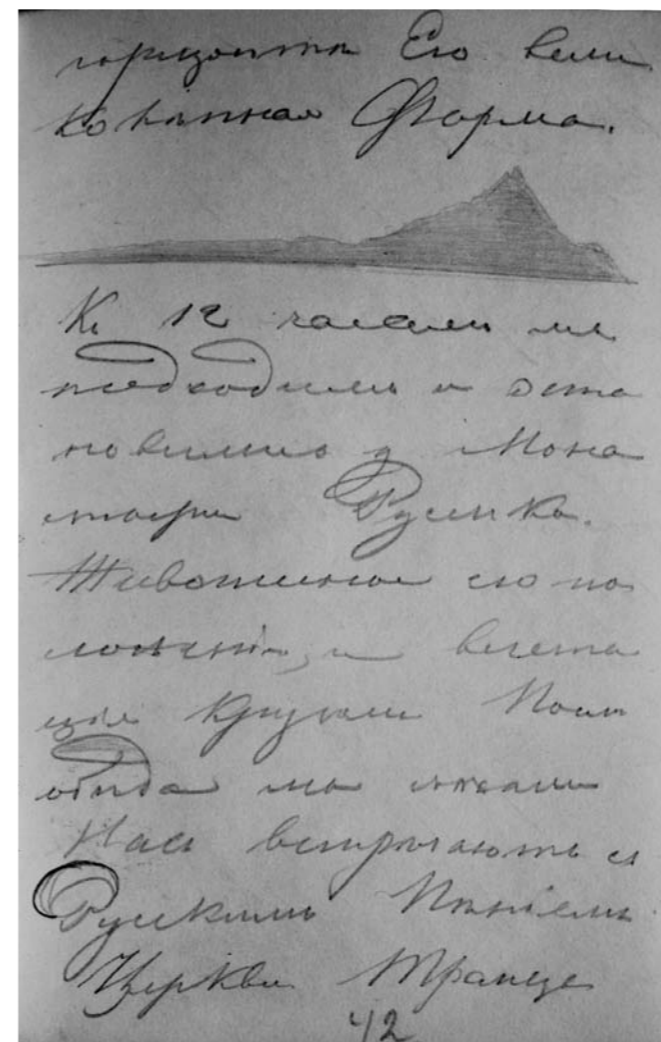 горизонта Его вели
коватная Форма.
Къ 12 часамъ мы
подходимъ и оста
новились у Мона
стыря Руссика.
Живописное его по
ложеніе, и вегета
ція кругомъ Посл
обѣда мы
Насъ встрѣчаютъ съ
Русскимъ
Церкви Трапезе
42